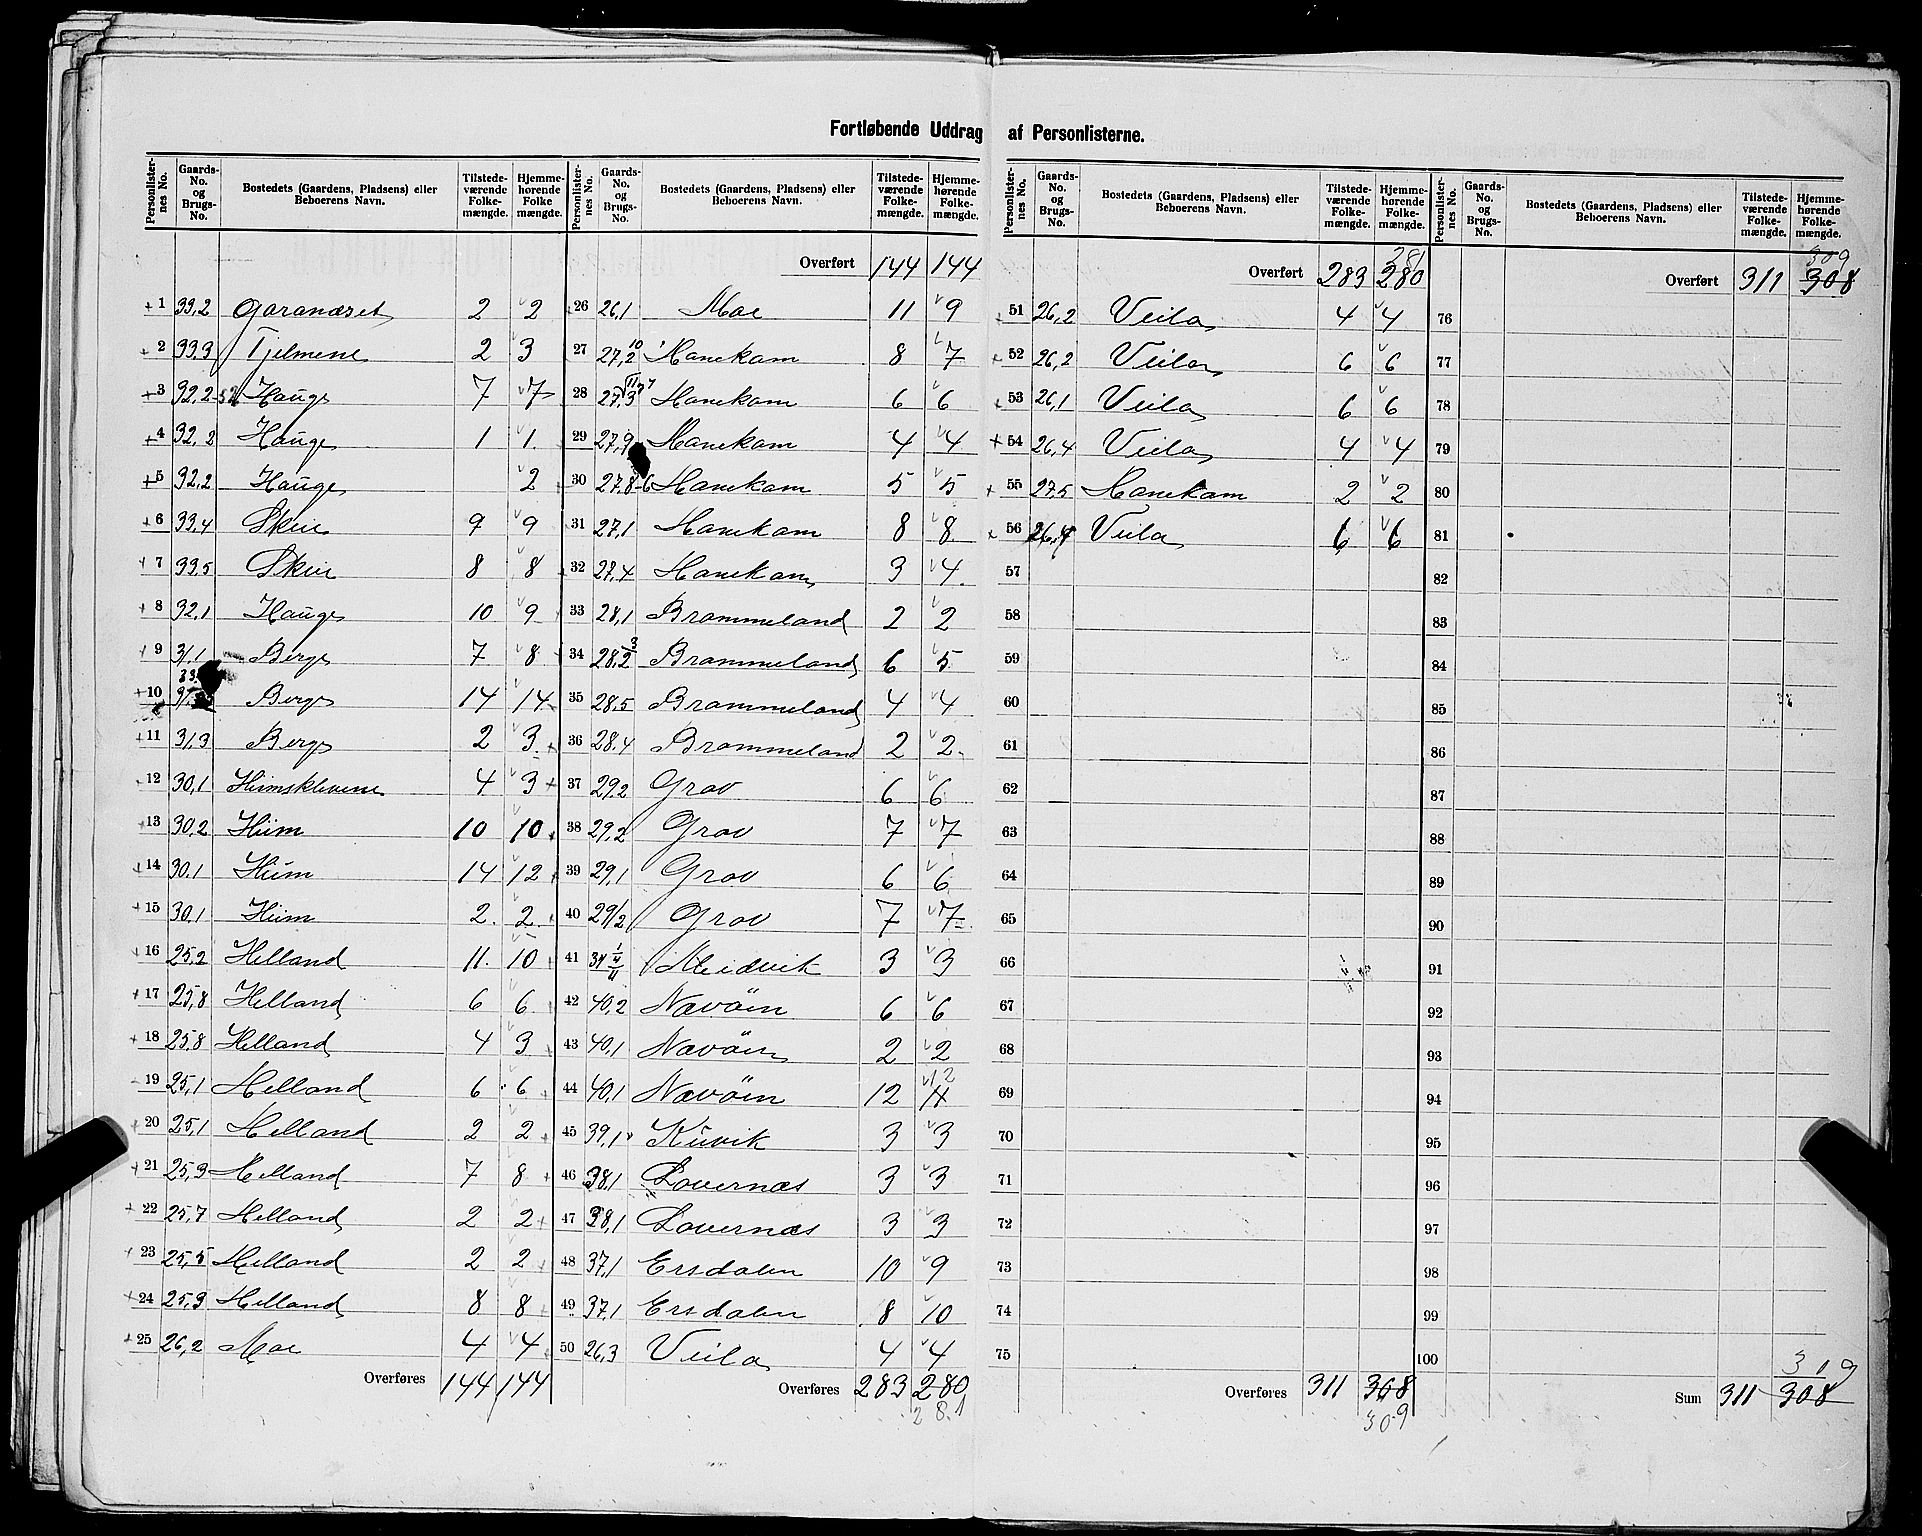 Fortløbende Uddrag af Personlisterne.
Personlister-nes No. | Gaards-No. og Brugs-No. | Bostedets (Gaardens, Pladsens) eller Beboerens Navn. | Tilstede-værende Folke-mængde. | Hjemme-hørende Folke mængde.
+1 33,2 Garanæset 2 2
+2 33,3 Tjelmene 2 3
+3 32,2 Hauge 7 7
+4 32,2 Hauge 1 1
+5 32,2 Hauge 2
+6 33,4 Skeie 9 9
+7 33,5 Skeie 8 8
+8 32,1 Hauge 10 9
+9 31,1 Berge 7 8
+10 Berge 14 14
+11 31,3 Berge 2 3
+12 30,1 Heimsklevene 4 3
+13 30,2 Heim 10 10
+14 30.1 Heim 14 12
+15 30.1 Heim 2 2
+16 25,2 Helland 11 10
+17 25,8 Helland 6 6
+18 25,8 Helland 4 3
19 25,1 Helland 6 6
20 25,1 Helland 2 2
+21 25,3 Helland 7 8
+22 25,7 Helland 2 2
+23 25,5 Helland 2 2
+24 25,3 Helland 8 8
+25 26,2 Moe 4 4
Overføres 144 144
Personlister-nes No. | Gaards-No. og Brugs-No. | Bostedets (Gaardens, Pladsens) eller Beboerens Navn. | Tilstede-værende Folke-mængde. | Hjemme-hørende Folke-mængde.
Overført 144 144
26 26,1 Moe 11 9
27 27,2 Hanekam 8 7
28 27,3 Hanekam 6 6
29 27,9 Hanekam 4 4
30 27,8-6 Hanekam 5 5
31 27,1 Hanekam 8 8
32 27,4 Hanekam 3 4
33 28,1 Brommeland 2 2
34 28,2 3 Brommeland 6 5
35 28,5 Brommeland 4 4
36 28,4 Brommeland 2 2
37 29,2 Grov 6 6
38 29,2 Grov 7 7
39 29,1 Grov 6 6
40 29/2 Grov 7 7
41 Meidvik 3 3
42 40,2 Nævöien 6 6
43 40,1 Nævöien 2 2
44 40,1 Nævöien 12 12
45 39,1 Kuvik 3 3
46 38,1 Lovernæs 3 3
47 38,1 Lovernæs 3 3
48 37,1 Ersdalen 10 9
49 37,1 Ersdalen 8 10
50 26,3 Veila 4 4
Overføres 283 280
281
Personlister-nes No. | Gaards-No. og Brugs-No. | Bostedets (Gaardens, Pladsens) eller Beboerens Navn. | Tilstede-værende Folke-mængde. | Hjemme-hørende Folke-mængde.
281
Overført 283 280
51 26,2 Veila 4 4
52 26,2 Veila 6 6
53 26,1 Veila 6 6
+54 26,4 Veila 4 4
+55 27,5 Hanekam 2 2
+56 26,4 Veila 6 6
57
58
59
60
61
62
63
64
65
66
67
68
69
70
71
72
73
74
75
Overføres 311 308
309
Personlister-nes No. | Gaards-No. og Brugs-No. | Bostedets (Gaardens, Pladsens) eller Beboerens Navn. | Tilstede-værende Folke-mængde. | Hjemme-hørende Folke-mængde.
309
Overført 311 308
76
77
78
79
80
81
82
83
84
85
86
87
88
89
90
91
92
93
94
95
96
97
98
99
100
319
Sum 311 308